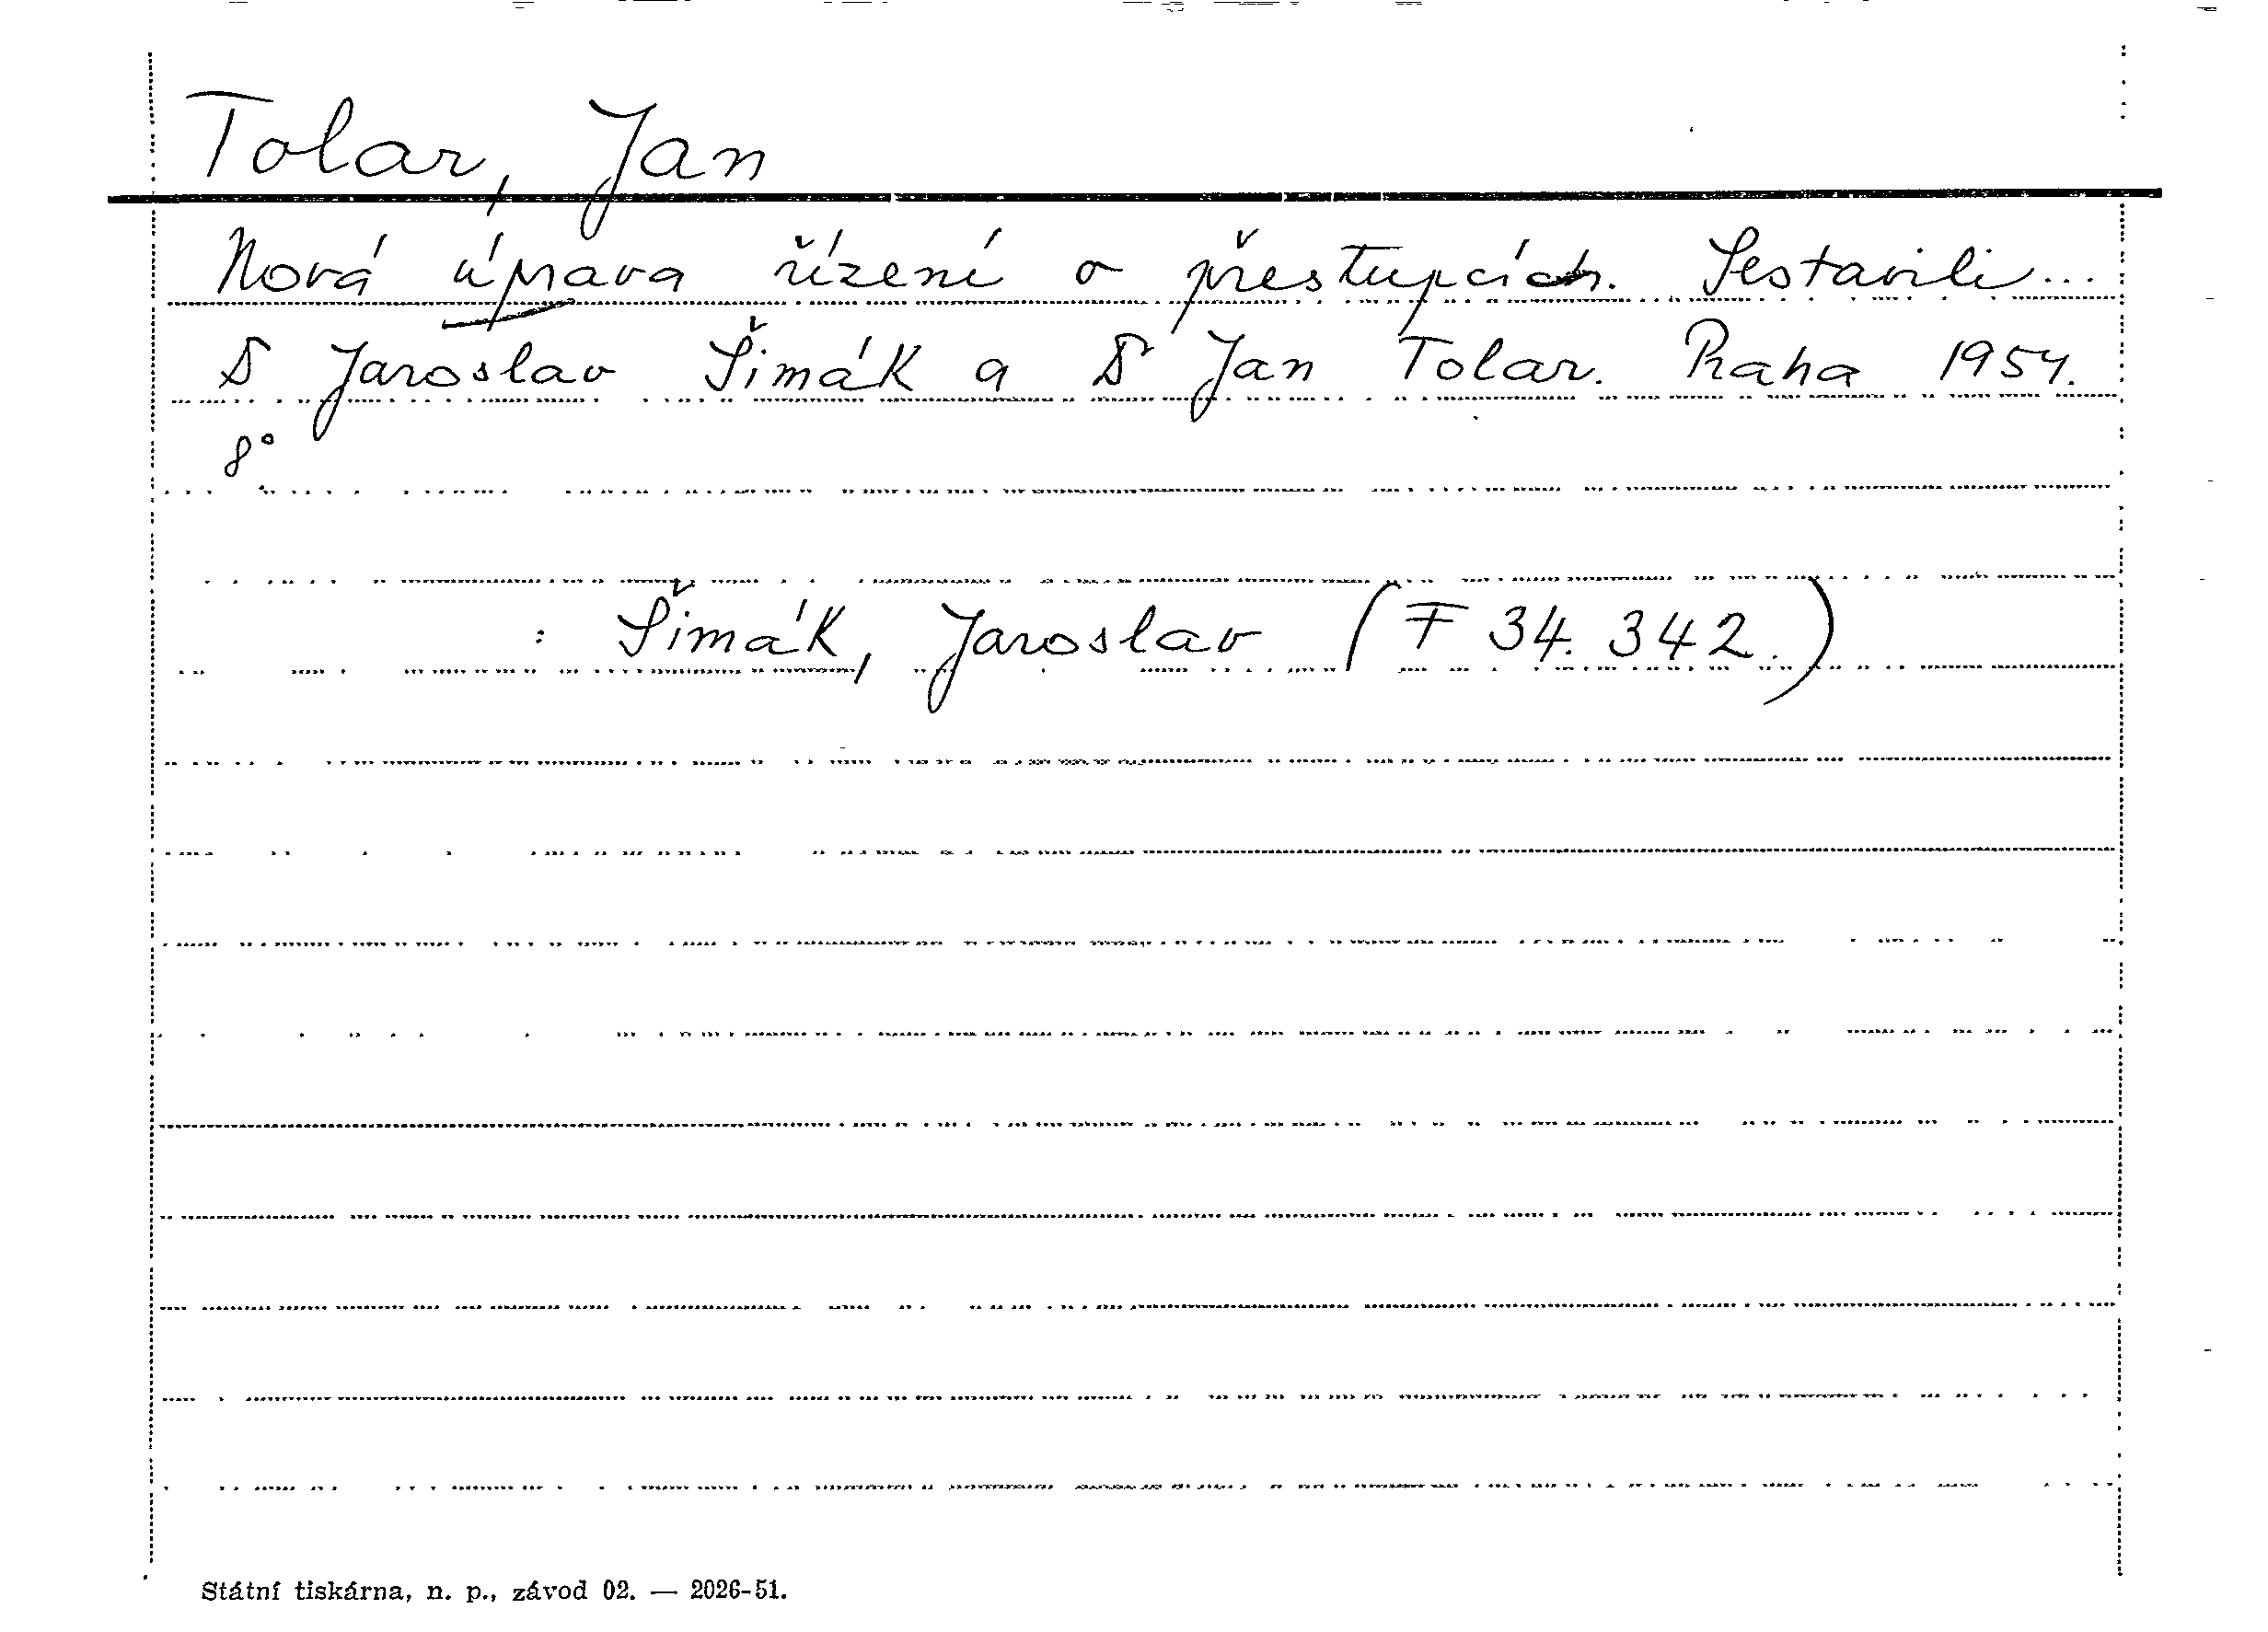 Tolar, Jan
Nová úprava řízení o přestupcích. Sestavili...
Dr Jaroslav Šimák a Dr Jan Tolar. Praha 1954.
8°
: Šimák, Jaroslav (F 34.342.)
Státní tiskárna, n. p., závod 02. — 2026-51.